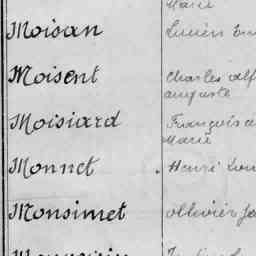 Marie
Moisan Lucien
Moisent Charles
auguste
Moisiard François
Marie
Monnet Henri
Monsimet ollivier